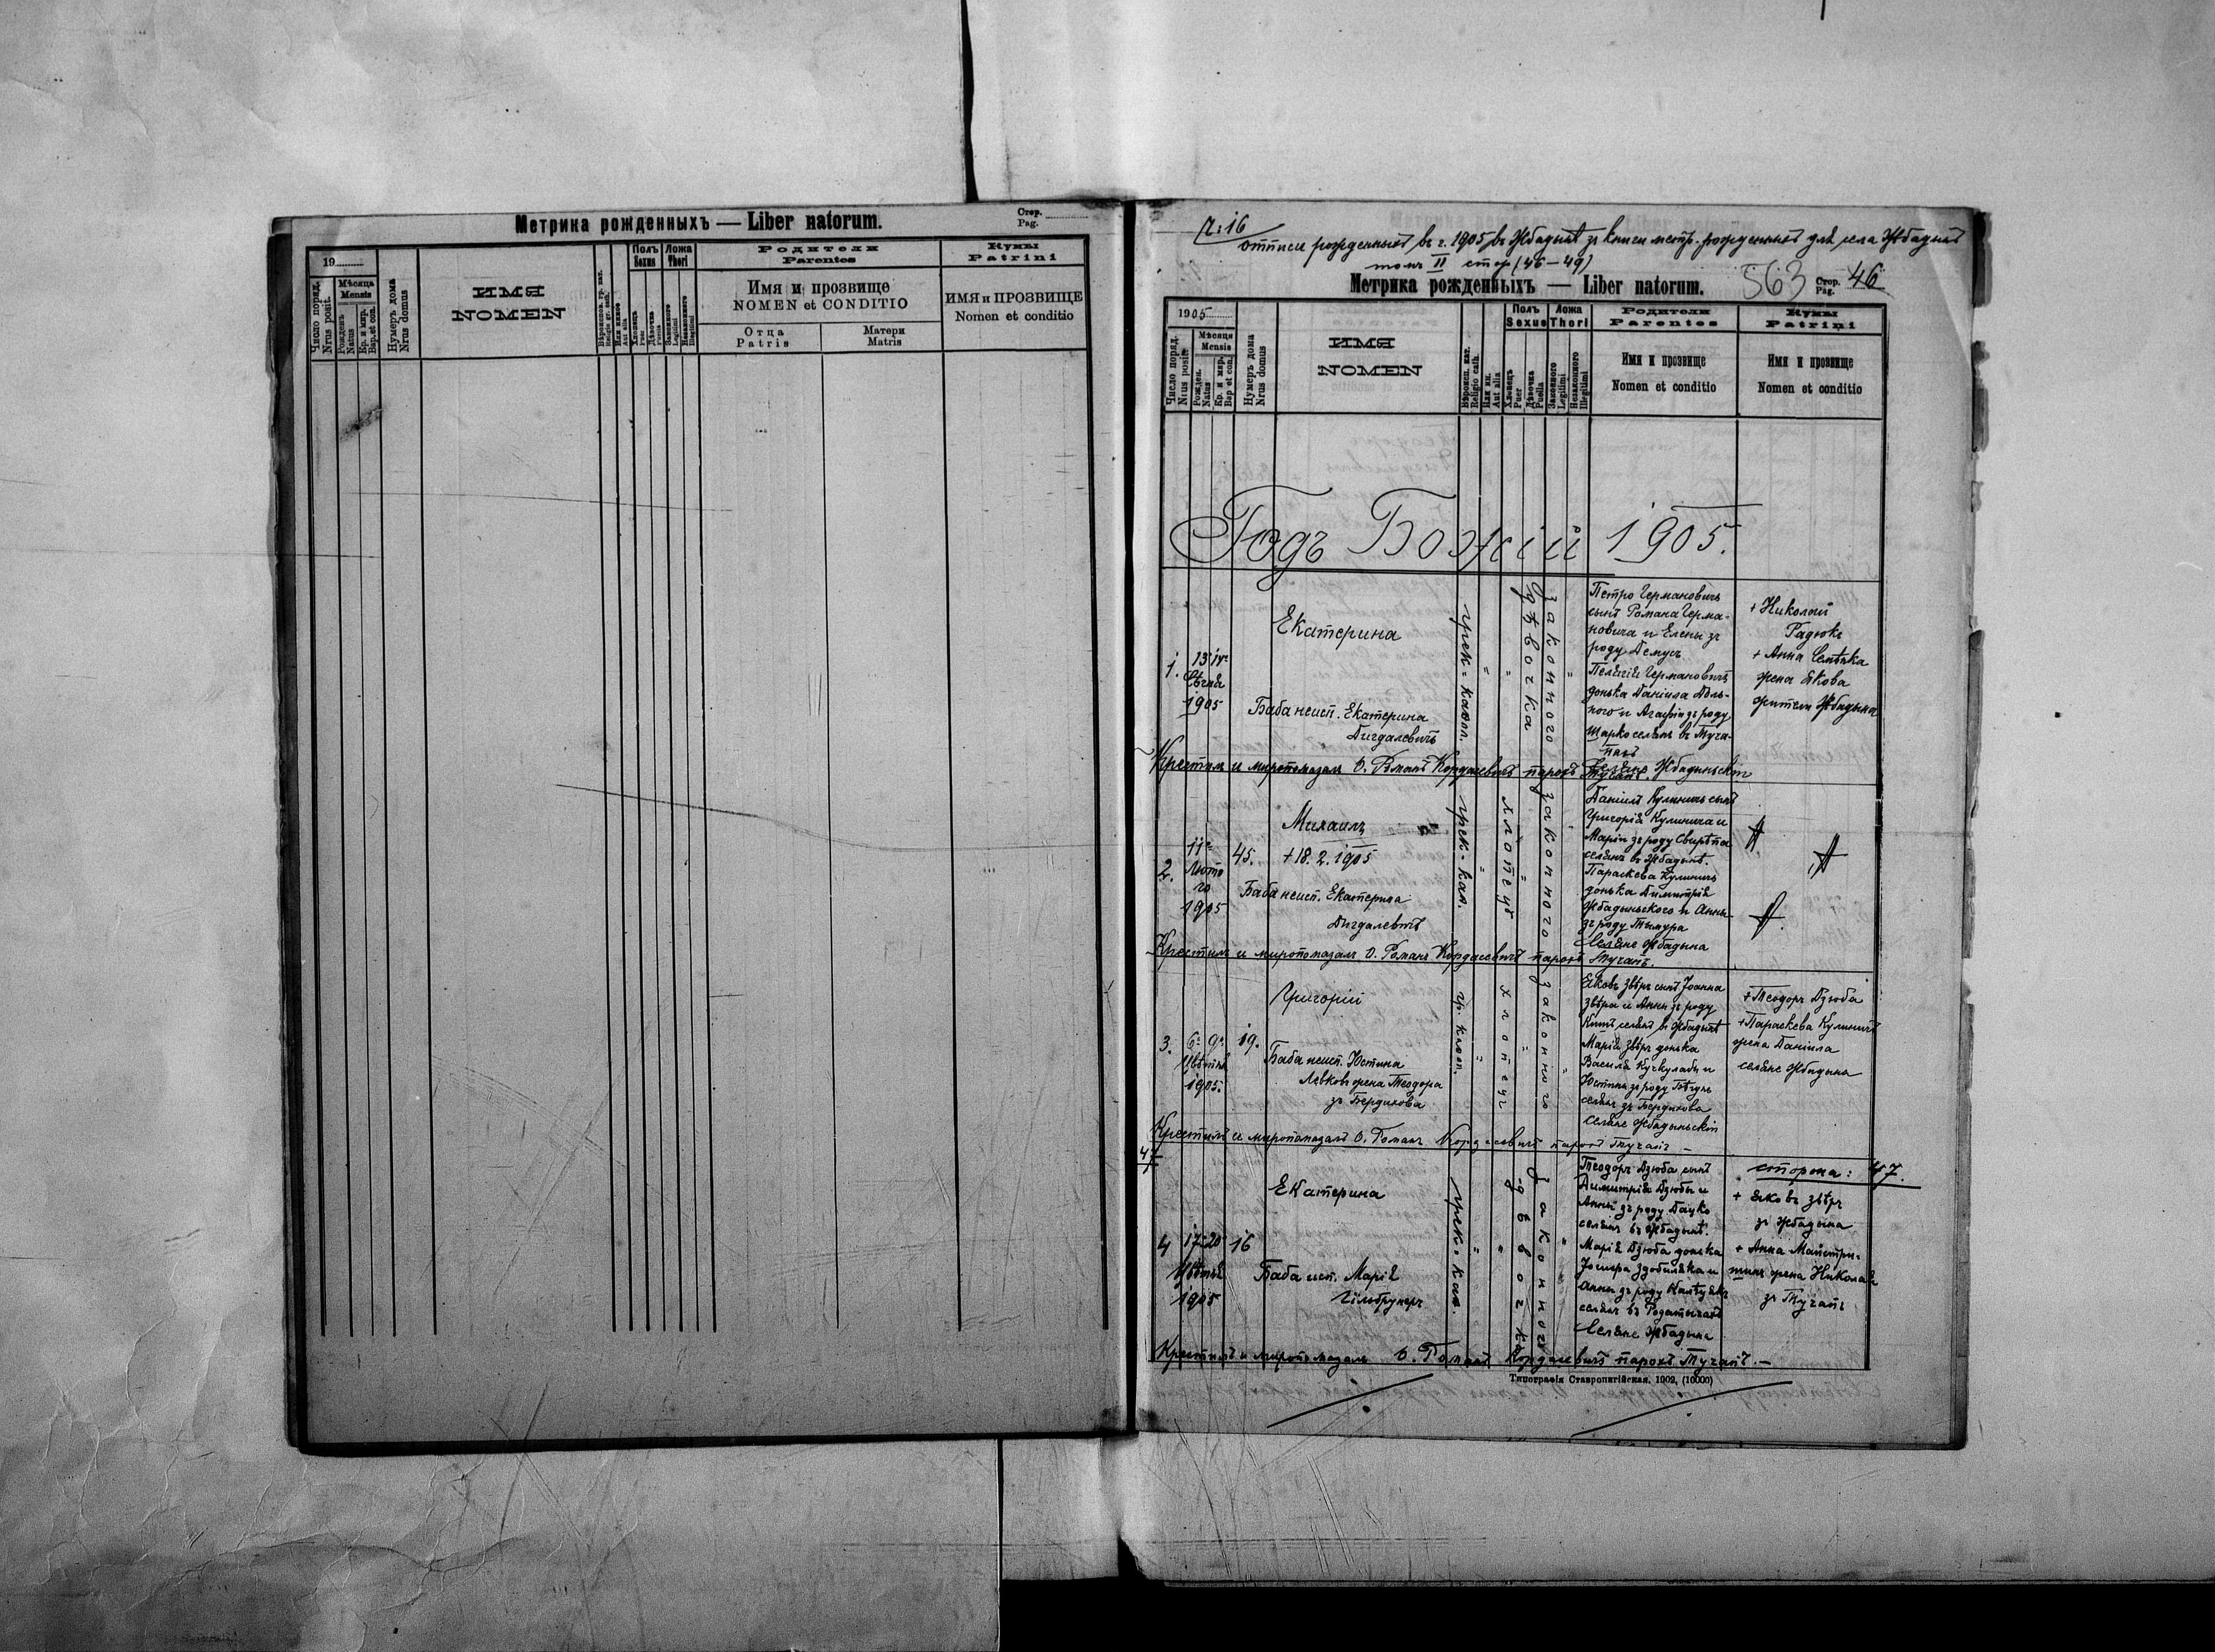 Метрика рожденныхъ — Liber natorum.
Стор.
Pag.
19
Число поряд.
Nrus posit.
Мѣсяца
Mensis
Рожденъ
Natus
Кр. и мѵр.
Bap. et con.
Нумеръ дома
Nrus domus
ИМЯ
NOMEN
Или иное
Aut alia
Полъ
Sexus
Хлопецъ
Puer
Дѣвочка
Puella
Ложа
Thori
Законного
Legitimi
Незаконного
Illegitimi
Родители
Parentes
Имя и прозвище
NOMEN et CONDITIO
Отца
Patris
Матери
Matris
Кумы
Patrini
ИМЯ и ПРОЗВИЩЕ
Nomen et conditio
Ч: 16
отписи рожденныхъ въ г. 1905 въ Жбадынѣ зъ книги метр. рожденныхъ для села Жбадынѣ
томъ II стор (46–49)
Метрика рожденныхъ — Liber natorum.
563
Стор.
Pag.
46
1905
Число поряд.
Nrus posit.
Мѣсяца
Mensis
Рожден.
Natus
Кр. и мѵр.
Bap et con.
Нумеръ дома
Nrus domus
ИМЯ
NOMEN
Вѣроисп. кат.
Religio cath.
Или ин.
Aut alia
Полъ
Sexus
Хлопецъ
Puer
Дѣвочка
Puella
Ложа
Thori
Законного
Legitimi
Незаконного
Illegitimi
Родители
Parentes
Имя и прозвище
Nomen et conditio
Кумы
Patrini
Имя и прозвище
Nomen et conditio
Годъ Божій 1905.
1.
13
Сѣчня
1905
Екатерина
Баба неисп. Екатерина
Дигдалевичъ
грек-кафол.
дѣвочка
законного
Петро Германовичъ
сынъ Романа Герма-
новича и Елены зъ
роду Демусъ
Пелагія Германовичъ
донька Даніила
и Агафіи зъ роду
Шарко селянъ въ Туча-
пахъ
селяне Жбадыньскіи
+ Николай
Радюкъ
+ Анна
жена Якова
жители Жбадына
Крестилъ и миропомазалъ О. Романъ Кордасевичъ парохъ Тучапъ.
2.
11
Люто
го
1905
45.
Михаилъ
+ 18. 2. 1905
Баба неисп. Екатерина
Дигдалевичъ
грек-каф.
хлопецъ
законного
Даніилъ Кулиничъ сынъ
Григорія Кулинича и
Маріи зъ роду
селянъ въ Жбадынѣ.
Параскева Кулиничъ
донька Димитрія
Жбадыньского и Анны
зъ роду Тымура
Селяне Жбадына
Крестилъ и миропомазалъ О. Романъ Кордасевичъ парохъ Тучапъ.
3.
6. 9.
Цвѣтня
1905.
19.
Григорій
Баба неисп. Юстина
Левковъ жена Теодора
зъ Бердихова
гр. кафол.
хлопецъ
законного
Яковъ Звѣръ сынъ Іоанна
Звѣра и Анны зъ роду
Китъ селянъ въ Жбадынѣ
Марія Звѣръ донька
Василя и
Юстины зъ роду
селянъ зъ Бердихова
Селяне Жбадыньскіи
+ Теодоръ Дзюба
+ Параскева Кулиничъ
жена Даніила
селяне Жбадына
Крестилъ и миропомазалъ О. Романъ Кордасевичъ парохъ Тучапъ –
47
сторона: 47.
4
17 20
Цвѣтня
1905
16
Екатерина
Баба исп. Марія
Гільбрунеръ
грек-каф.
дѣвочка
законного
Теодоръ Дзюба сынъ
Димитрія Дзюбы и
Анны зъ роду Дацко
селянъ въ Жбадынѣ.
Марія Дзюба донька
Іосифа и
Анны зъ роду
селянъ въ Родатычахъ
Селяне Жбадына
+ Яковъ Звѣръ
зъ Жбадына
+ Анна Майстри-
шинъ жена Николая
зъ Тучапъ
Крестилъ и миропомазалъ О. Романъ Кордасевичъ парохъ Тучапъ. –
Типографія Ставропигійская. 1902, (10000)